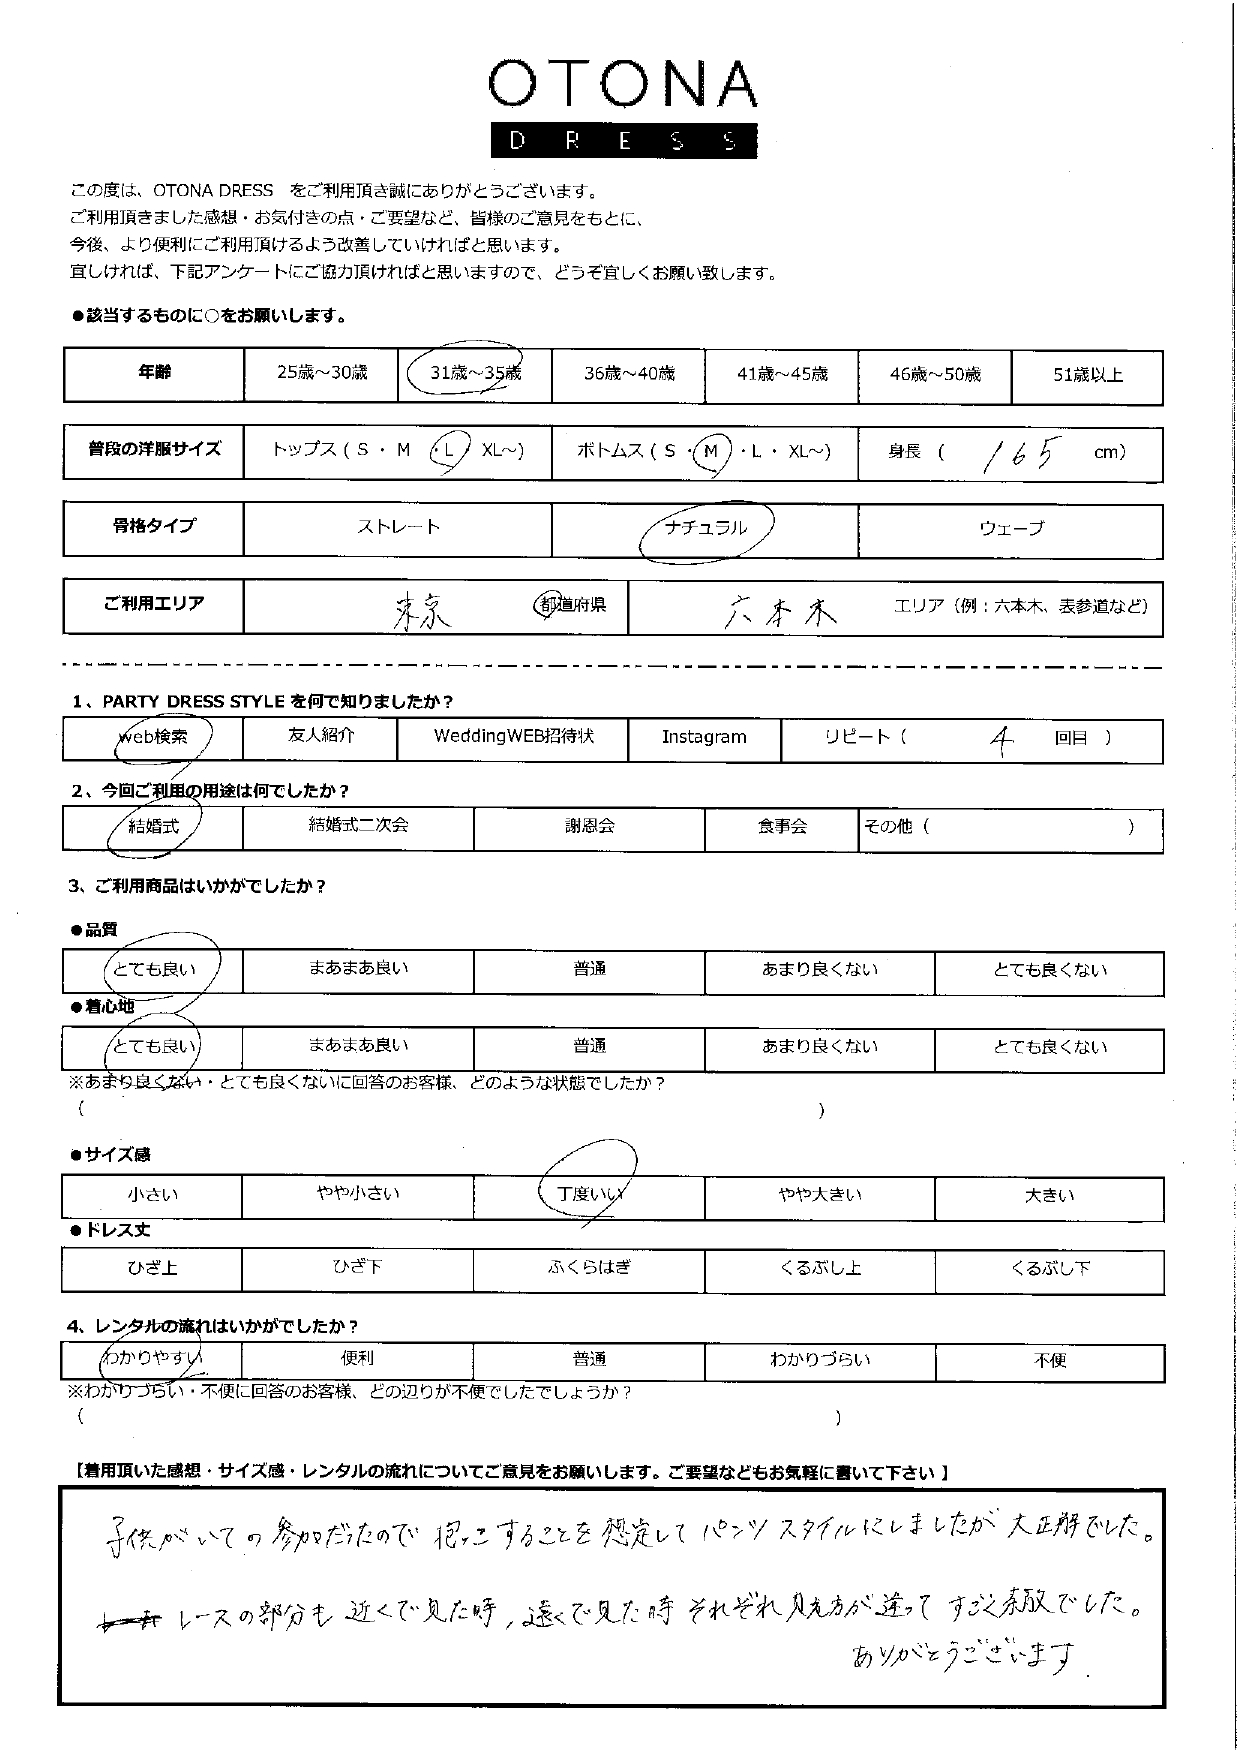 OTONA
DRESS
この度は、OTONA DRESS をご利用頂き誠にありがとうございます。
ご利用頂きました感想・お気付きの点・ご要望など、皆様のご意見をもとに、
今後、より便利にご利用頂けるよう改善していければと思います。
宜しければ、下記アンケートにご協力頂ければと思いますので、どうぞ宜しくお願い致します。
●該当するものに○をお願いします。
年齢 25歳～30歳 31歳～35歳 36歳～40歳 41歳～45歳 46歳～50歳 51歳以上
普段の洋服サイズ トップス ( S ・ M ・L XL～) ボトムス ( S ・M ・L ・ XL～) 身長 ( 165 cm)
骨格タイプ ストレート ナチュラル ウェーブ
ご利用エリア 東京 都道府県 六本木 エリア（例：六本木、表参道など）
1、PARTY DRESS STYLE を何で知りましたか？
web検索 友人紹介 WeddingWEB招待状 Instagram リピート（ 4 回目 ）
2、今回ご利用の用途は何でしたか？
結婚式 結婚式二次会 謝恩会 食事会 その他（ ）
3、ご利用商品はいかがでしたか？
●品質
とても良い まあまあ良い 普通 あまり良くない とても良くない
●着心地
とても良い まあまあ良い 普通 あまり良くない とても良くない
※あまり良くない・とても良くないに回答のお客様、どのような状態でしたか？
（ ）
●サイズ感
小さい やや小さい 丁度いい やや大きい 大きい
●ドレス丈
ひざ上 ひざ下 ふくらはぎ くるぶし上 くるぶし下
4、レンタルの流れはいかがでしたか？
わかりやすい 便利 普通 わかりづらい 不便
※わかりづらい・不便に回答のお客様、どの辺りが不便でしたでしょうか？
（ ）
【着用頂いた感想・サイズ感・レンタルの流れについてご意見をお願いします。ご要望などもお気軽に書いて下さい 】
子供がいての参加だったので 抱っこすることを想定して パンツ スタイルにしましたが 大正解でした。
レースの部分も 近くで見た時, 遠くで見た時 それぞれ見え方が違って すごく素敵でした。
ありがとうございます.